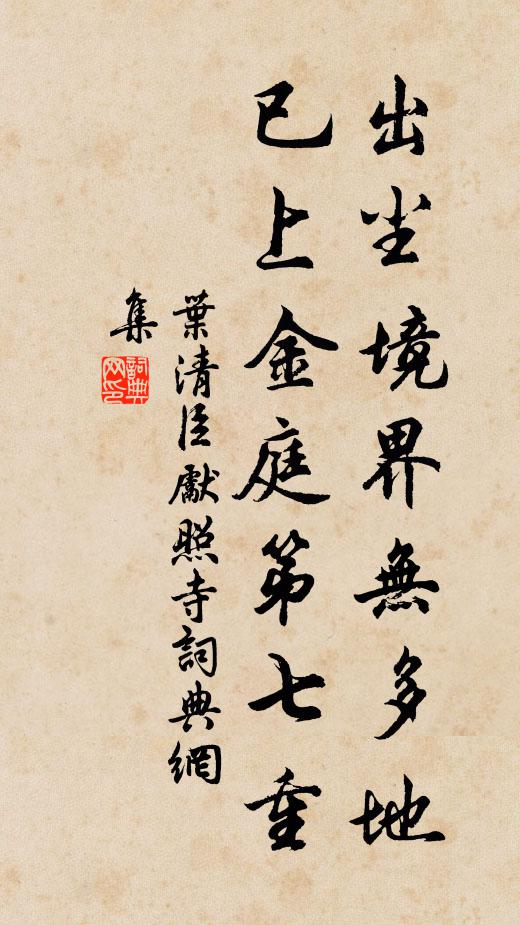 出尘境界無多地
已上金庭第七重
葉清臣獻照寺詞典網
集
詞典网印